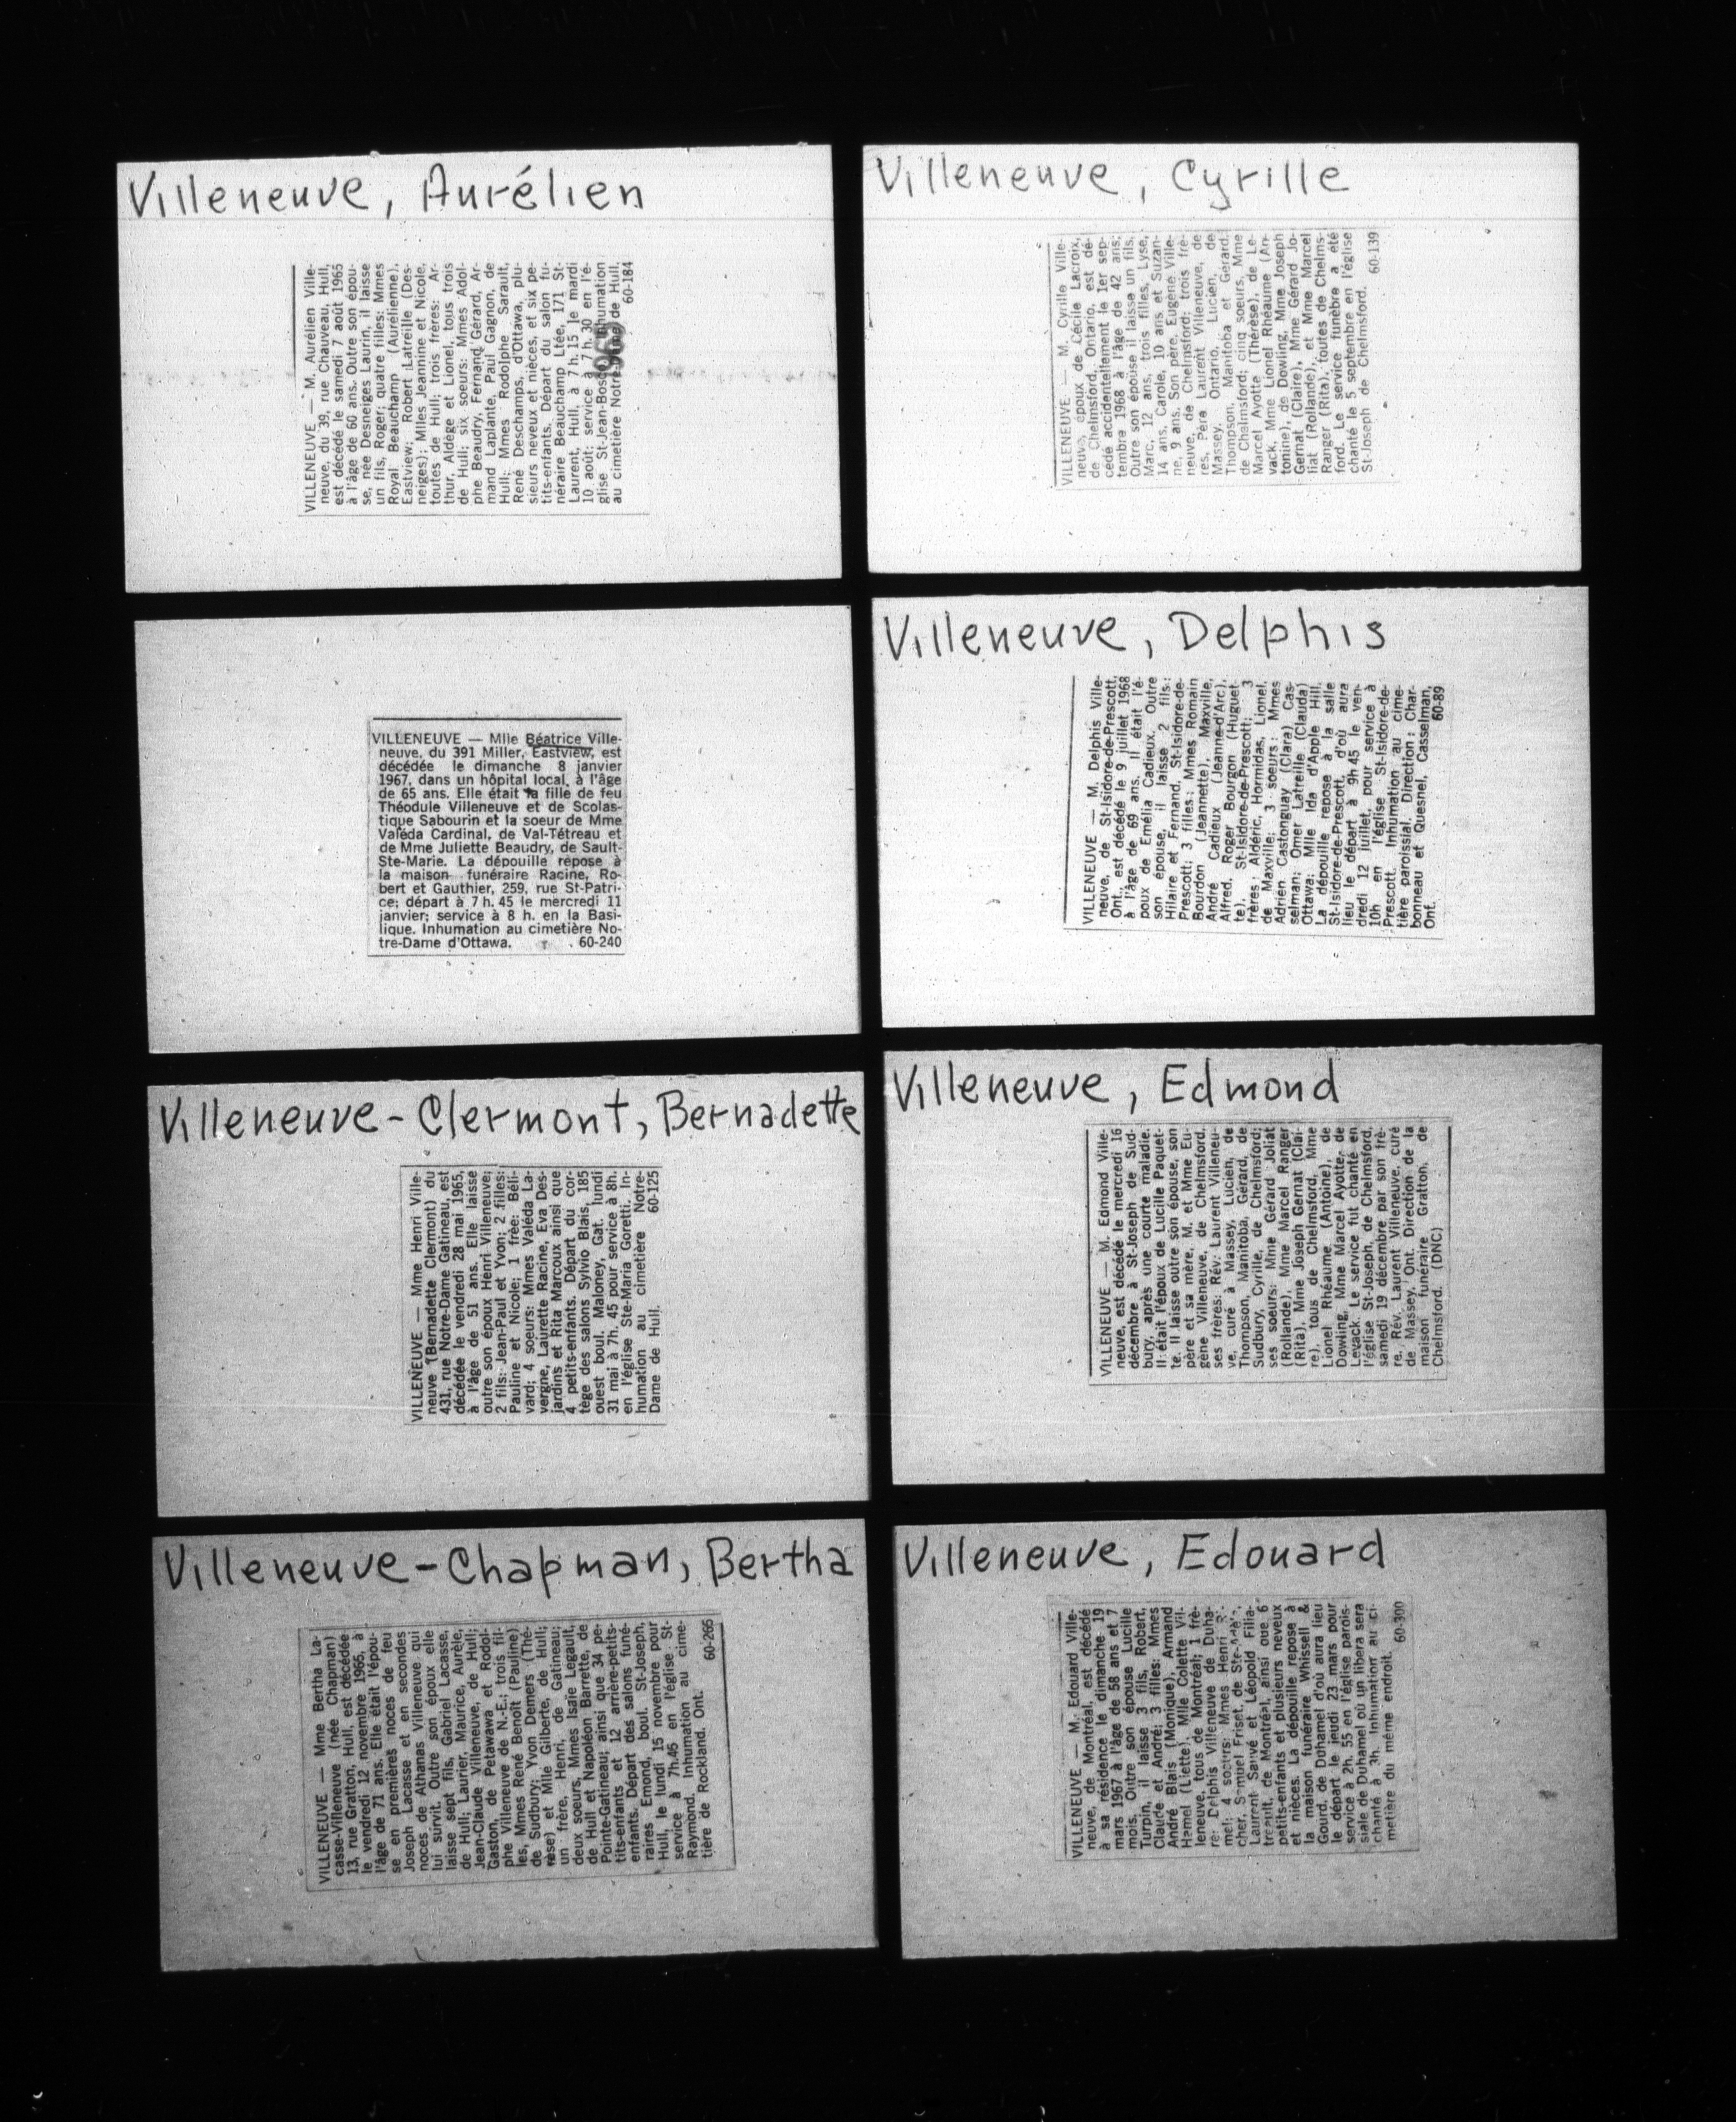 Villeneuve, Aurélien
VILLENEUVE — M. Aurélien Ville-
neuve, du 39, rue Chauveau, Hull,
est décédé le samedi 7 août 1965
à l'âge de 60 ans. Outre son épou-
se, née Desneiges Laurin, il laisse
un fils, Roger; quatre filles: Mmes
Royal Beauchamp (Aurélienne),
Eastview; Robert Latreille (Des-
neiges); Mlles Jeannine et Nicole,
toutes de Hull; trois frères: Ar-
thur, Aldège et Lionel, tous trois
de Hull; six soeurs: Mmes Adol-
phe Beaudry, Fernand Gérard, Ar-
mand Laplante, Paul Gagnon, de
Hull; Mmes Rodolphe Sarault,
René Deschamps, d'Ottawa, plu-
sieurs neveux et nièces, et six pe-
tits-enfants. Départ du salon fu-
néraire Beauchamp Ltée, 171 St-
Laurent, Hull, à 7 h. 15 le mardi
10 août; service à 7 h. 30 en l'é-
glise St-Jean-Bosco. Inhumation
au cimetière Notre-Dame de Hull.
60-184
Villeneuve, Cyrille
VILLENEUVE — M. Cyrille Ville-
neuve, époux de Cécile Lacroix,
de Chelmsford, Ontario, est dé-
cédé accidentellement le 1er sep-
tembre 1968 à l'âge de 42 ans;
Outre son épouse il laisse un fils,
Marc, 12 ans, trois filles, Lyse,
14 ans, Carole, 10 ans et Suzan-
ne, 9 ans. Son père, Eugène Ville-
neuve, de Chelmsford; trois frè-
res, Père Laurent Villeneuve, de
Massey, Ontario, Lucien, de
Thompson, Manitoba et Gérard,
de Chelmsford; cinq soeurs, Mme
Marcel Ayotte (Thérèse), de Le-
vack, Mme Lionel Rhéaume (An-
tonine), de Dowling, Mme Joseph
Gernat (Claire), Mme Gérard Jo-
liat (Rollande), et Mme Marcel
Ranger (Rita), toutes de Chelms-
ford. Le service funèbre a été
chanté le 5 septembre en l'église
St-Joseph de Chelmsford.
60-139
VILLENEUVE — Mlle Béatrice Ville-
neuve, du 391 Miller, Eastview, est
décédée le dimanche 8 janvier
1967, dans un hôpital local, à l'âge
de 65 ans. Elle était la fille de feu
Théodule Villeneuve et de Scolas-
tique Sabourin et la soeur de Mme
Valéda Cardinal, de Val-Tétreau et
de Mme Juliette Beaudry, de Sault-
Ste-Marie. La dépouille repose à
la maison funéraire Racine, Ro-
bert et Gauthier, 259, rue St-Patri-
ce; départ à 7 h. 45 le mercredi 11
janvier; service à 8 h. en la Basi-
lique. Inhumation au cimetière No-
tre-Dame d'Ottawa. 60-240
Villeneuve, Delphis
VILLENEUVE — M. Delphis Ville-
neuve, de St-Isidore-de-Prescott,
Ont., est décédé le 9 juillet 1968
à l'âge de 69 ans. Il était l'é-
poux de Emélia Cadieux. Outre
son épouse, il laisse 2 fils:
Hilaire et Fernand, St-Isidore-de-
Prescott; 3 filles: Mmes Romain
Bourdon (Jeannette), Maxville,
André Cadieux (Jeanne-d'Arc),
Alfred, Roger Bourgon (Huguet-
te), St-Isidore-de-Prescott; 3
frères: Aldéric, Hormidas, Lionel,
de Maxville; 3 soeurs: Mmes
Adrien Castonguay (Clara) Cas-
selman; Omer Latreille (Clauda)
Ottawa; Mlle Ida d'Apple Hill.
La dépouille repose à la salle
St-Isidore-de-Prescott, d'où aura
lieu le départ à 9h 45 le ven-
dredi 12 juillet, pour service à
10h en l'église St-Isidore-de-
Prescott. Inhumation au cime-
tière paroissial. Direction: Char-
bonneau et Quesnel, Casselman,
Ont. 60-89
Villeneuve-Clermont, Bernadette
VILLENEUVE — Mme Henri Ville-
neuve (Bernadette Clermont) du
431, rue Notre-Dame Gatineau, est
décédée le vendredi 28 mai 1965,
à l'âge de 51 ans. Elle laisse
outre son époux Henri Villeneuve;
2 fils: Jean-Paul et Yvon; 2 filles:
Pauline et Nicole; 1 frée: Béli-
vard; 4 soeurs: Mmes Valéda La-
vergne, Laurette Racine, Eva Des-
jardins et Rita Marcoux ainsi que
4 petits-enfants. Départ du cor-
tège des salons Sylvio Blais, 185
ouest boul. Maloney, Gat. lundi
31 mai à 7h. 45 pour service à 8h.
en l'église Ste-Maria Goretti. In-
humation au cimetière Notre-
Dame de Hull. 60-125
Villeneuve, Edmond
VILLENEUVE — M. Edmond Ville-
neuve, est décédé le mercredi 16
décembre à St-Joseph de Sud-
bury, après une courte maladie.
Il était l'époux de Lucille Paquet-
te. Il laisse outre son épouse, son
père et sa mère, M. et Mme Eu-
gène Villeneuve, de Chelmsford,
ses frères: Rév. Laurent Villeneu-
ve, curé à Massey, Lucien, de
Thompson, Manitoba, Gérard, de
Sudbury, Cyrille, de Chelmsford;
ses soeurs: Mme Gérard Joliat
(Rollande), Mme Marcel Ranger
(Rita), Mme Joseph Gernat (Clai-
re), tous de Chelmsford, Mme
Lionel Rhéaume (Antoine), de
Dowling, Mme Marcel Ayotte, de
Levack. Le service fut chanté en
l'église St-Joseph, de Chelmsford,
samedi 19 décembre par son frè-
re, Rév. Laurent Villeneuve, curé
de Massey, Ont. Direction de la
maison funéraire Gratton, de
Chelmsford. (DNC)
Villeneuve-Chapman, Bertha
VILLENEUVE — Mme Bertha La-
casse-Villeneuve (née Chapman)
13, rue Gratton, Hull, est décédée
le vendredi 12 novembre 1965, à
l'âge de 71 ans. Elle était l'épou-
se en premières noces de feu
Joseph Lacasse et en secondes
noces de Athanas Villeneuve qui
lui survit. Outre son époux elle
laisse sept fils, Gabriel Lacasse,
de Hull; Laurier, Maurice, Aurèle,
Jean-Claude Villeneuve, de Hull;
Gaston, de Petawawa et Rodol-
phe Villeneuve de N.-E.; trois fil-
les, Mmes René Benoît (Pauline)
de Sudbury; Yvon Demers (Thé-
rèse) et Mlle Gilberte, de Hull;
un frère, Henri, de Gatineau;
deux soeurs, Mmes Isaïe Legault,
de Hull et Napoléon Barrette, de
Pointe-Gatineau; ainsi que 34 pe-
tits-enfants et 12 arrière-petits-
enfants. Départ des salons funé-
raires Emond, boul. St-Joseph,
Hull, le lundi 15 novembre pour
service à 7h.45 en l'église St-
Raymond. Inhumation au cime-
tière de Rockland. Ont.
60-265
Villeneuve, Edouard
VILLENEUVE — M. Edouard Ville-
neuve, de Montréal, est décédé
à sa résidence le dimanche 19
mars 1967 à l'âge de 58 ans et 7
mois. Outre son épouse Lucille
Turpin, il laisse 3 fils, Robert,
Claude et André; 3 filles: Mmes
André Blais (Monique), Armand
Hamel (Liette), Mlle Colette Vil-
leneuve, tous de Montréal; 1 frè-
re: Delphis Villeneuve de Duha-
mel; 4 soeurs: Mmes Henri
cher, Samuel Friset, de
Laurent Sauvé et Léopold Filia-
trault, de Montréal, ainsi que 6
petits-enfants et plusieurs neveux
et nièces. La dépouille repose à
la maison funéraire Whissell &
Gourd. de Duhamel d'où aura lieu
le départ le jeudi 23 mars pour
service à 2h. 55 en l'église parois-
siale de Duhamel où un libera sera
chanté à 3h. Inhumation au ci-
metière du même endroit.
60-300